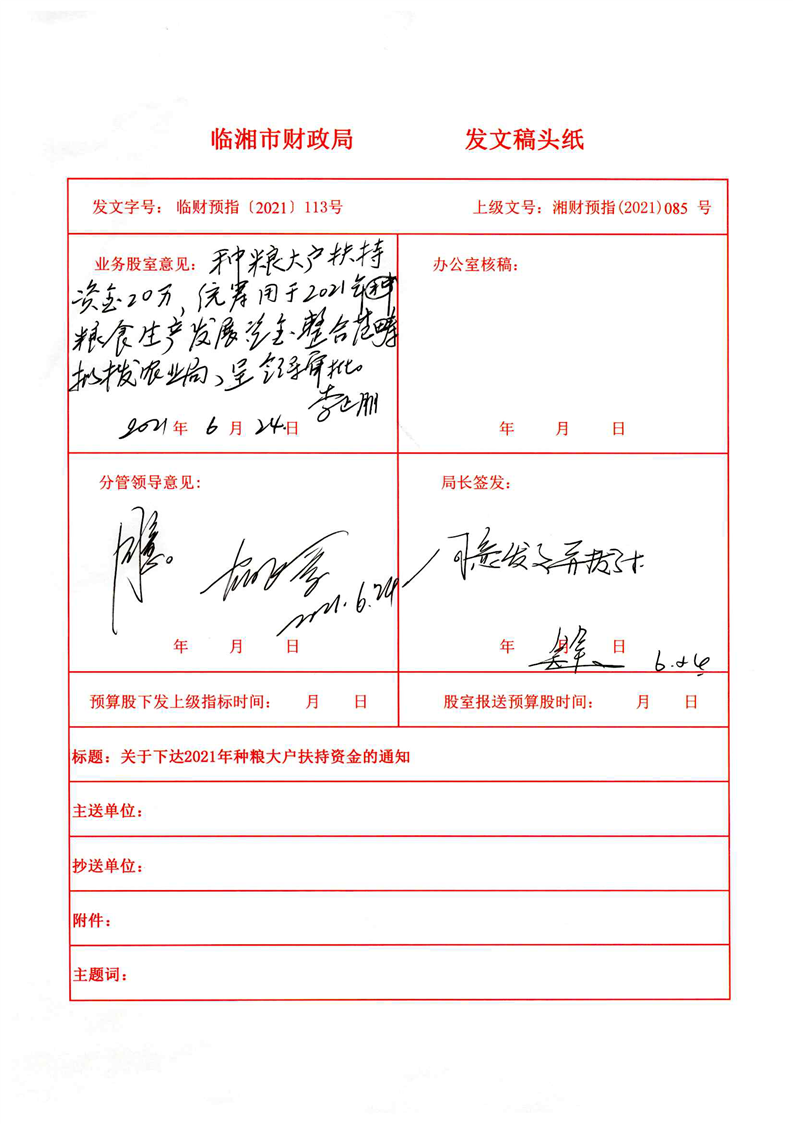 临湘市财政局 发文稿头纸
发文字号： 临财预指〔2021〕113号
上级文号：湘财预指(2021)085 号
业务股室意见：种粮大户扶持
资金20万，统筹用于2021年
粮食生产发展资金整合范畴
拟拨农业局，呈领导审批。
2021年 6 月 24日
办公室核稿：
年 月 日
分管领导意见：
同意。
2021.6.24
年 月 日
局长签发：
同意发
年 月 日
6.24
预算股下发上级指标时间： 月 日
股室报送预算股时间： 月 日
标题：关于下达2021年种粮大户扶持资金的通知
主送单位：
抄送单位：
附件：
主题词：